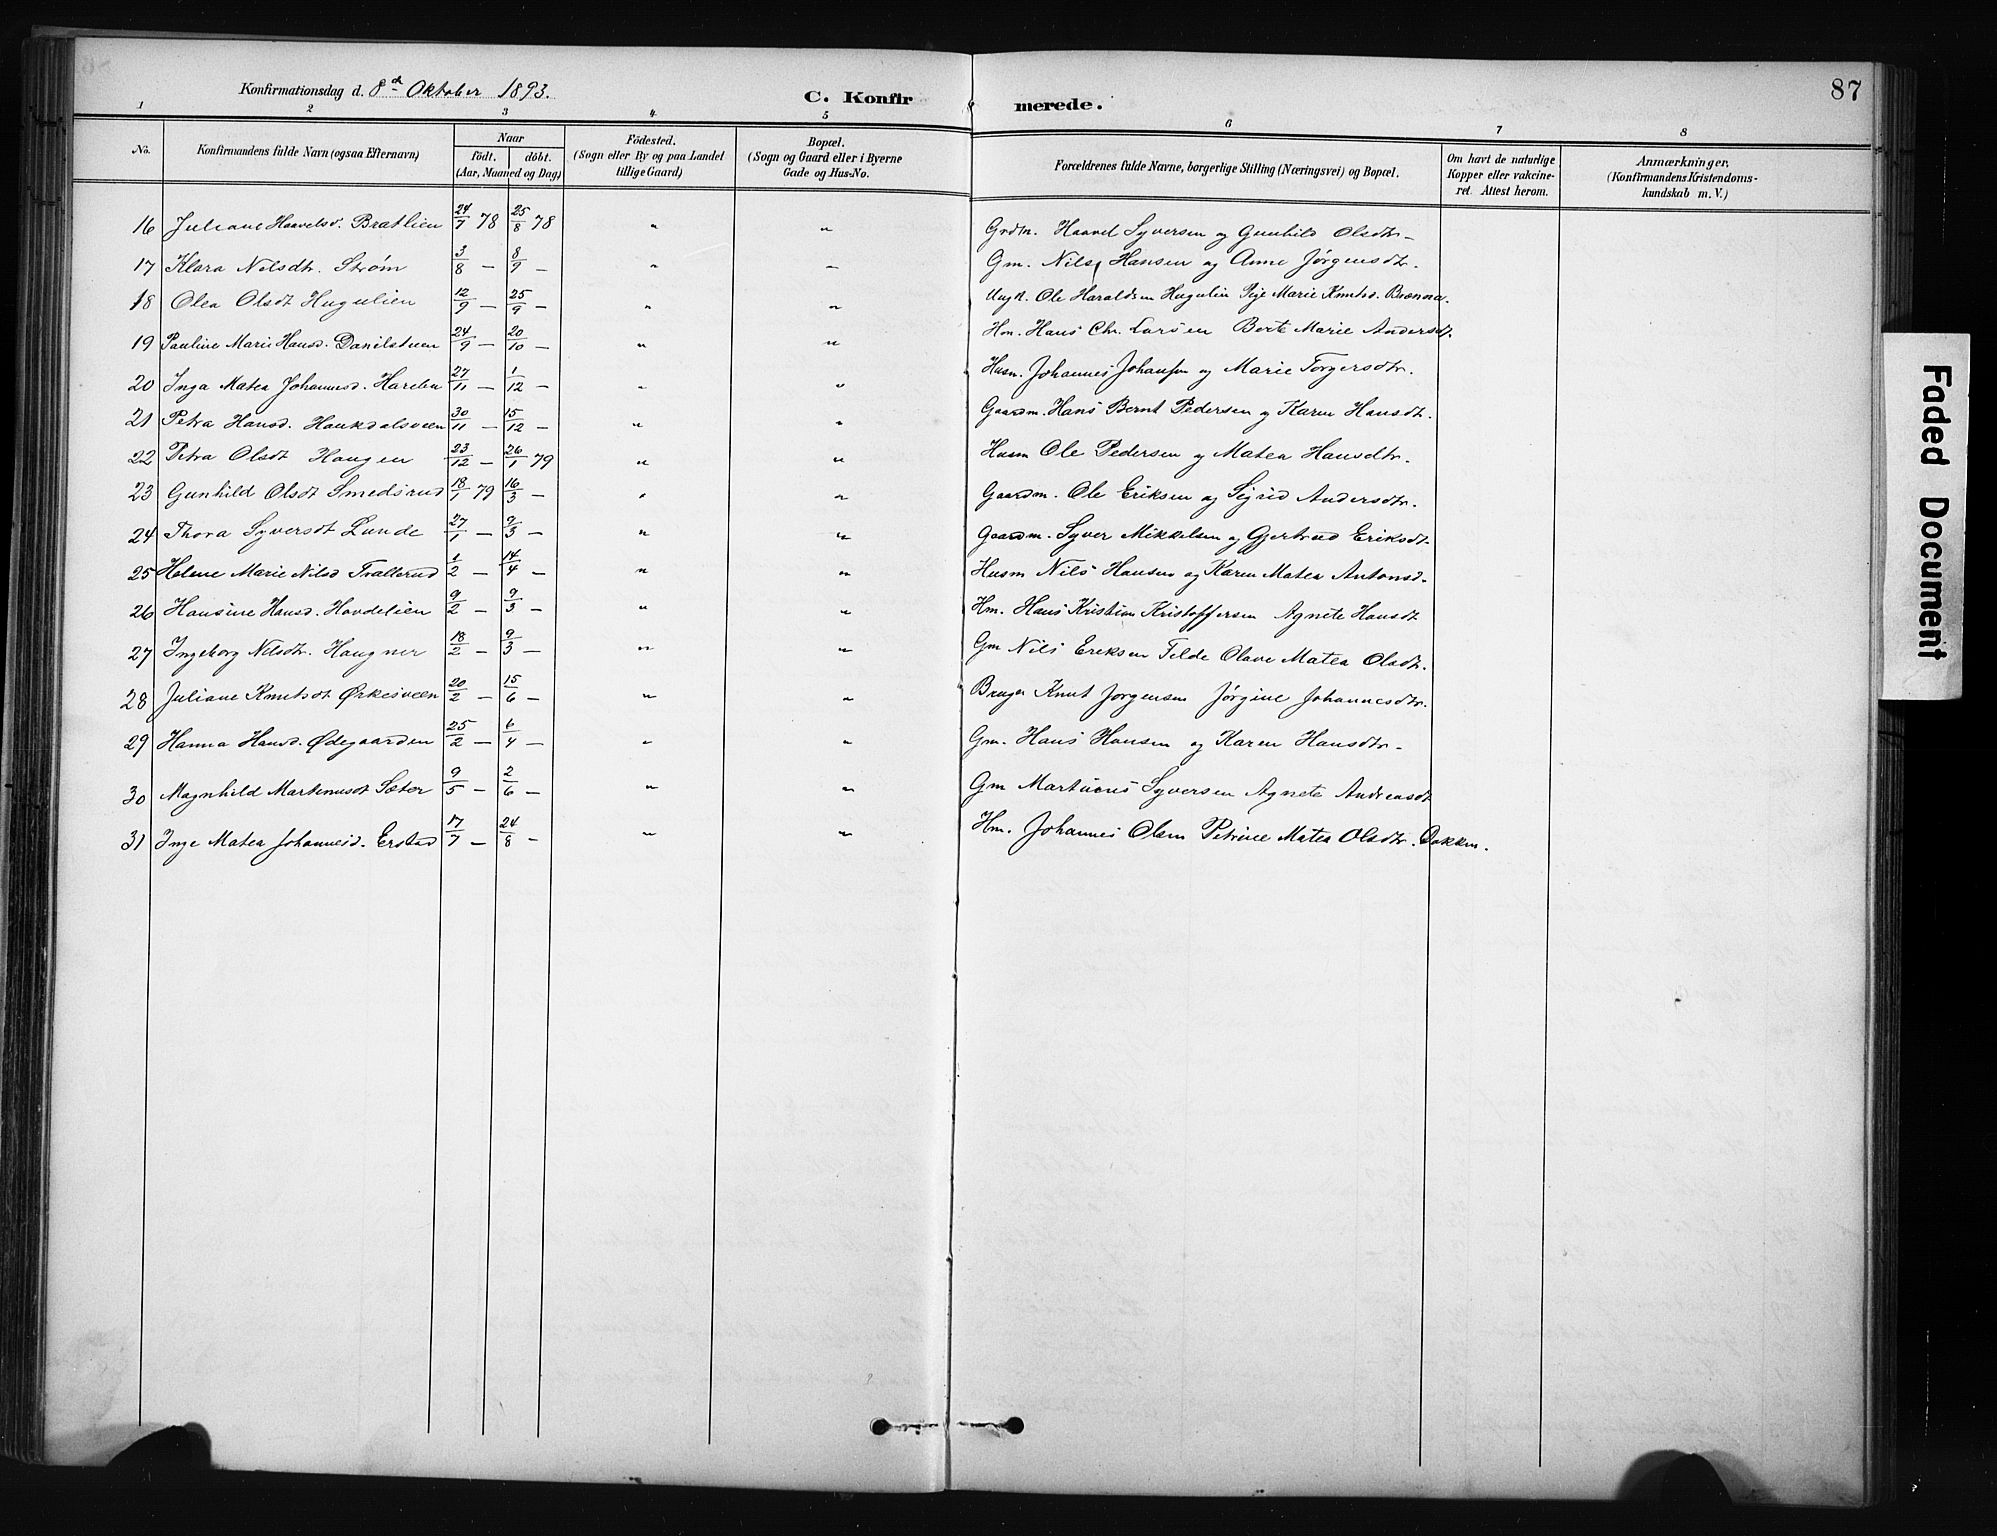 Konfirmationsdag d. 8de Oktober 1893.
C. Konfirmerede.
87
1 2 3 4 5 6 7 8
No.
Konfirmandens fulde Navn (ogsaa Efternavn)
Naar
födt. döbt.
(Aar, Maaned og Dag)
Födested.
(Sogn eller By og paa Landet
tillige Gaard)
Bopæl.
(Sogn og Gaard eller i Byerne
Gade og Hus-No.
Forældrenes fulde Navne, borgerlige Stilling (Næringsvei) og Bopæl.
Om havt de naturlige
Kopper eller vakcine-
ret. Attest herom.
Anmærkninger,
(Konfirmandens Kristendoms-
kundskab m. V.)
16 Juliane Haavelsd. Bratlien 24/7 78 25/8 78 " " Grdm. Haavel Syversen og Gunhild Olsdtr.
17 Klara Nilsdtr. Strøm 3/8 – 8/9 – " " Gm. Nils Hansen og Anne Jørgensdtr.
18 Olea Olsdt Hugulien 12/9 – 25/9 – " " Ungk. Ole Haraldsen Hugulin Pige Marie Knutsd. Brænna.
19 Pauline Marie Hansd. Danilsveen 24/9 – 20/10 – " " Hm. Hans Chr. Larsen Berte Marie Andersdt.
20 Inga Matea Johannesd. Hareben 27/11 – 1/12 – " " Husm. Johannes Johansen og Marie Torgersdtr.
21 Petra Hansd. Haukdalsveen 30/11 – 15/12 – " " Gaardm. Hans Bernt Pedersen og Karen Hansdt.
22 Petra Olsdt Haugen 23/12 – 26/1 79 " " Husm Ole Pedersen og Matea Hansdtr.
23 Gunhild Olsdt Smedsrud 18/1 79 16/3 – " " Gaardm. Ole Eriksen og Sigrid Andersdtr.
24 Thora Syversdt Lunde 27/1 – 9/3 – " " Gaardm. Syver Mikkelsen og Gjertrud Eriksdt.
25 Helene Marie Nilsd Trallerud 1/2 – 14/4 – " " Husm Nils Hansen og Karen Matea Antonsd.
26 Hansine Hansd. Hovdelien 9/2 – 9/3 – " " Hm. Hans Kristian Kristoffersen Agnete Hansdt
27 Ingeborg Nilsdtr. Haugner 18/2 – 9/3 – " " Gm Nils Eriksen Tilde Olave Matea Olsdtr.
28 Juliane Knutsdt Ørkesveen 20/2 – 15/6 – " " Bruger Knut Jorgensen Jørgine Johannesdtr.
29 Hanna Hansd. Ødegaarden 25/2 – 6/4 – " " Gm. Hans Hansen og Karen Hansdtr.
30 Magnhild Martinusdt Sæter 9/5 – 2/6 – " " Gm Martinus Syversen Agnete Andreasdt
31 Inge Matea Johannesd. Erstad 17/7 – 24/8 – " " Hm. Johannes Olsen Petrine Matea Olsdtr. Dokken.
Faded Document